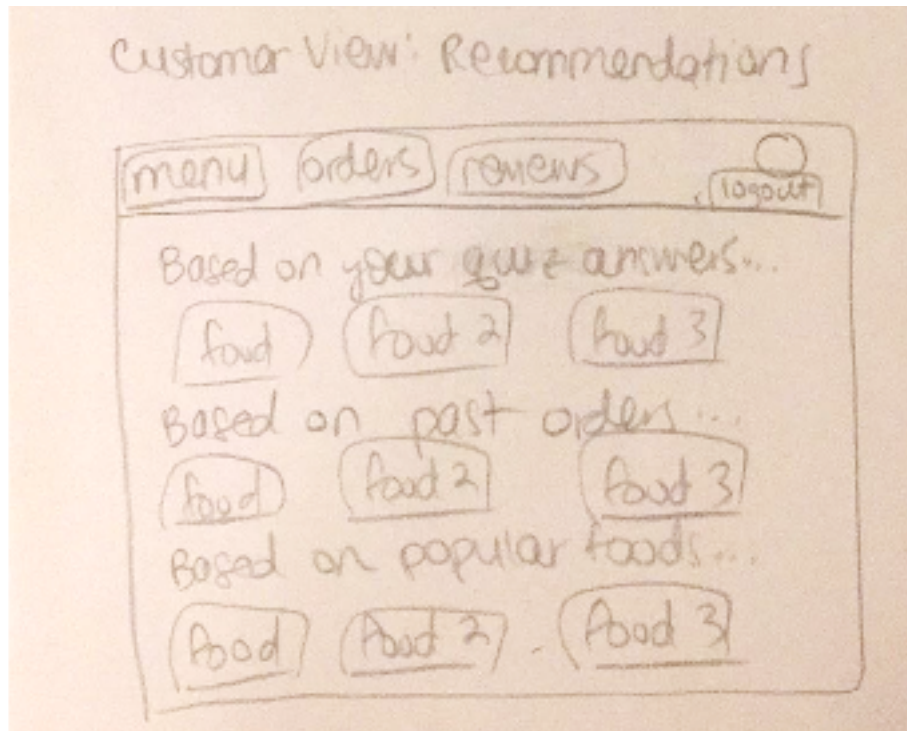 Customer View: Recommendations
menu orders reviews logout
Based on your quiz answers...
food food 2 food 3
Based on past orders...
food food 2 food 3
Based on popular foods...
food food 2 food 3